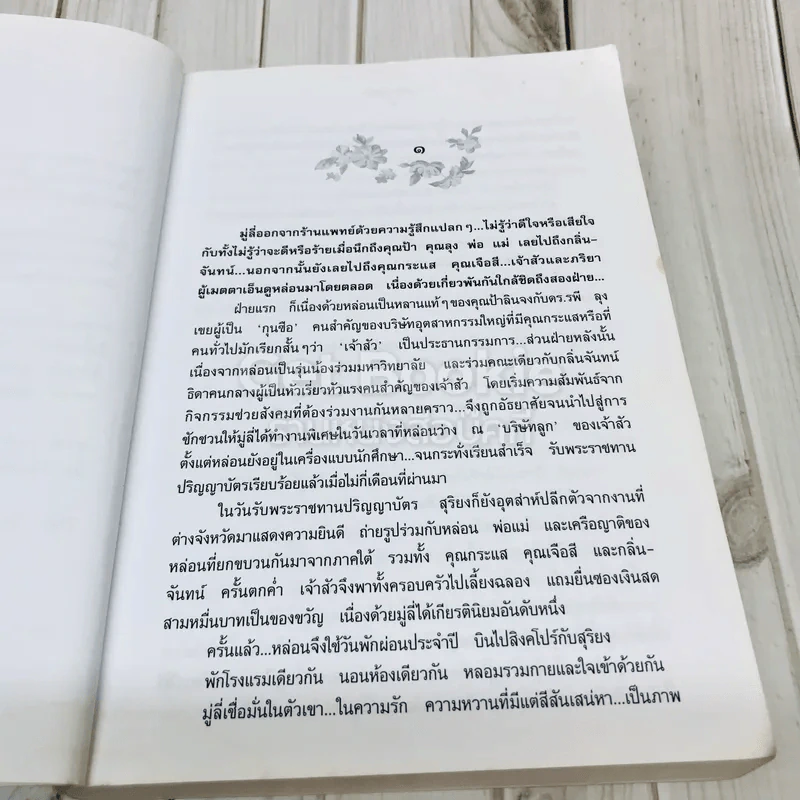 ๑
มู่ลี่ออกจากร้านแพทย์ด้วยความรู้สึกแปลกๆ...ไม่รู้ว่าดีใจหรือเสียใจ
กับทั้งไม่รู้ว่าจะดีหรือร้ายเมื่อนึกถึงคุณป้า คุณลุง พ่อ แม่ เลยไปถึงกลิ่น-
จันทน์...นอกจากนั้นยังเลยไปถึงคุณกระแส คุณเจือสี...เจ้าสัวและภริยา
ผู้เมตตาเอ็นดูหล่อนมาโดยตลอด เนื่องด้วยเกี่ยวพันกันใกล้ชิดถึงสองฝ่าย...
ฝ่ายแรก ก็เนื่องด้วยหล่อนเป็นหลานแท้ๆของคุณป้าลินจงกับดร.รพี ลุง
เขยผู้เป็น 'กุนซือ' คนสำคัญของบริษัทอุตสาหกรรมใหญ่ที่มีคุณกระแสหรือที่
คนทั่วไปมักเรียกสั้นๆว่า 'เจ้าสัว' เป็นประธานกรรมการ...ส่วนฝ่ายหลังนั้น
เนื่องจากหล่อนเป็นรุ่นน้องร่วมมหาวิทยาลัย และร่วมคณะเดียวกับกลิ่นจันทน์
ธิดาคนกลางผู้เป็นหัวเรี่ยวหัวแรงคนสำคัญของเจ้าสัว โดยเริ่มความสัมพันธ์จาก
กิจกรรมช่วยสังคมที่ต้องร่วมงานกันหลายคราว...จึงถูกอัธยาศัยจนนำไปสู่การ
ชักชวนให้มู่ลี่ได้ทำงานพิเศษในวันเวลาที่หล่อนว่าง ณ 'บริษัทลูก' ของเจ้าสัว
ตั้งแต่หล่อนยังอยู่ในเครื่องแบบนักศึกษา...จนกระทั่งเรียนสำเร็จ รับพระราชทาน
ปริญญาบัตรเรียบร้อยแล้วเมื่อไม่กี่เดือนที่ผ่านมา
ในวันรับพระราชทานปริญญาบัตร สุริยงก็ยังอุตส่าห์ปลีกตัวจากงานที่
ต่างจังหวัดมาแสดงความยินดี ถ่ายรูปร่วมกับหล่อน พ่อแม่ และเครือญาติของ
หล่อนที่ยกขบวนกันมาจากภาคใต้ รวมทั้ง คุณกระแส คุณเจือสี และกลิ่น-
จันทน์ ครั้นตกค่ำ เจ้าสัวจึงพาทั้งครอบครัวไปเลี้ยงฉลอง แถมยื่นซองเงินสด
สามหมื่นบาทเป็นของขวัญ เนื่องด้วยมู่ลี่ได้เกียรตินิยมอันดับหนึ่ง
ครั้นแล้ว...หล่อนจึงใช้วันพักผ่อนประจำปี บินไปสิงคโปร์กับสุริยง
พักโรงแรมเดียวกัน นอนห้องเดียวกัน หลอมรวมกายและใจเข้าด้วยกัน
มู่ลี่เชื่อมั่นในตัวเขา...ในความรัก ความหวานที่มีแต่สีสันเสน่หา...เป็นภาพ